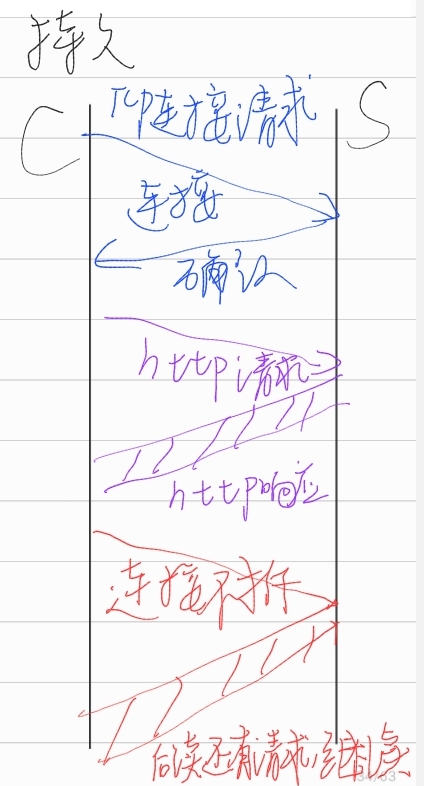 持久
C
S
TCP连接请求
连接
确认
http请求
http响应
连接不拆
后续还有请求,